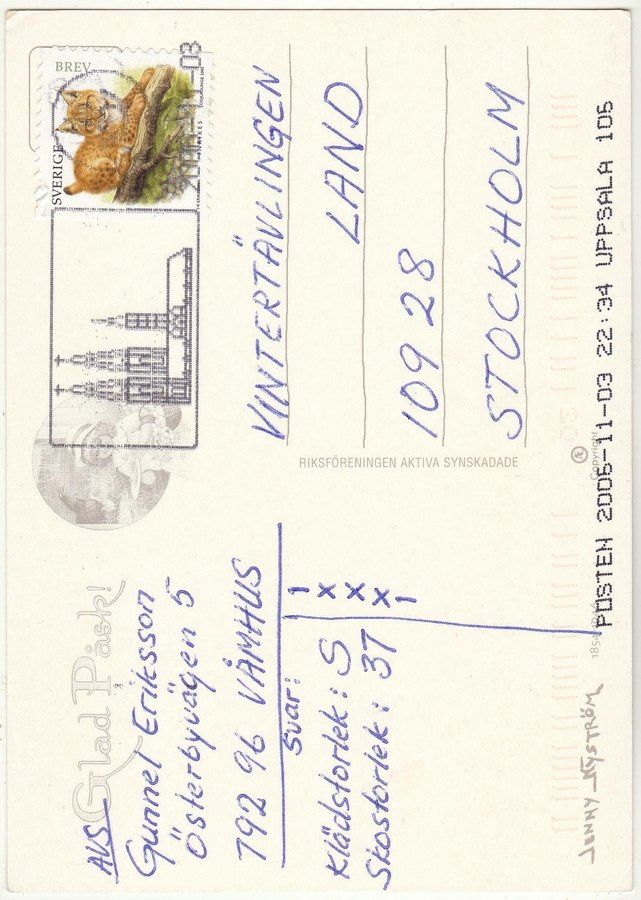 Glad Påsk!
AVS
Gunnel Eriksson
Österbyvägen 5
792 96 VÅMHUS
Svar:
1
X
X
X
1
Klädstorlek: S
Skostorlek: 37
JENNY NYSTRÖM
BREV
SVERIGE
INRIKES
VINTERTÄVLINGEN
LAND
109 28
STOCKHOLM
RIKSFÖRENINGEN AKTIVA SYNSKADADE
Copyright
POSTEN 2006-11-03 22:34 UPPSALA 105